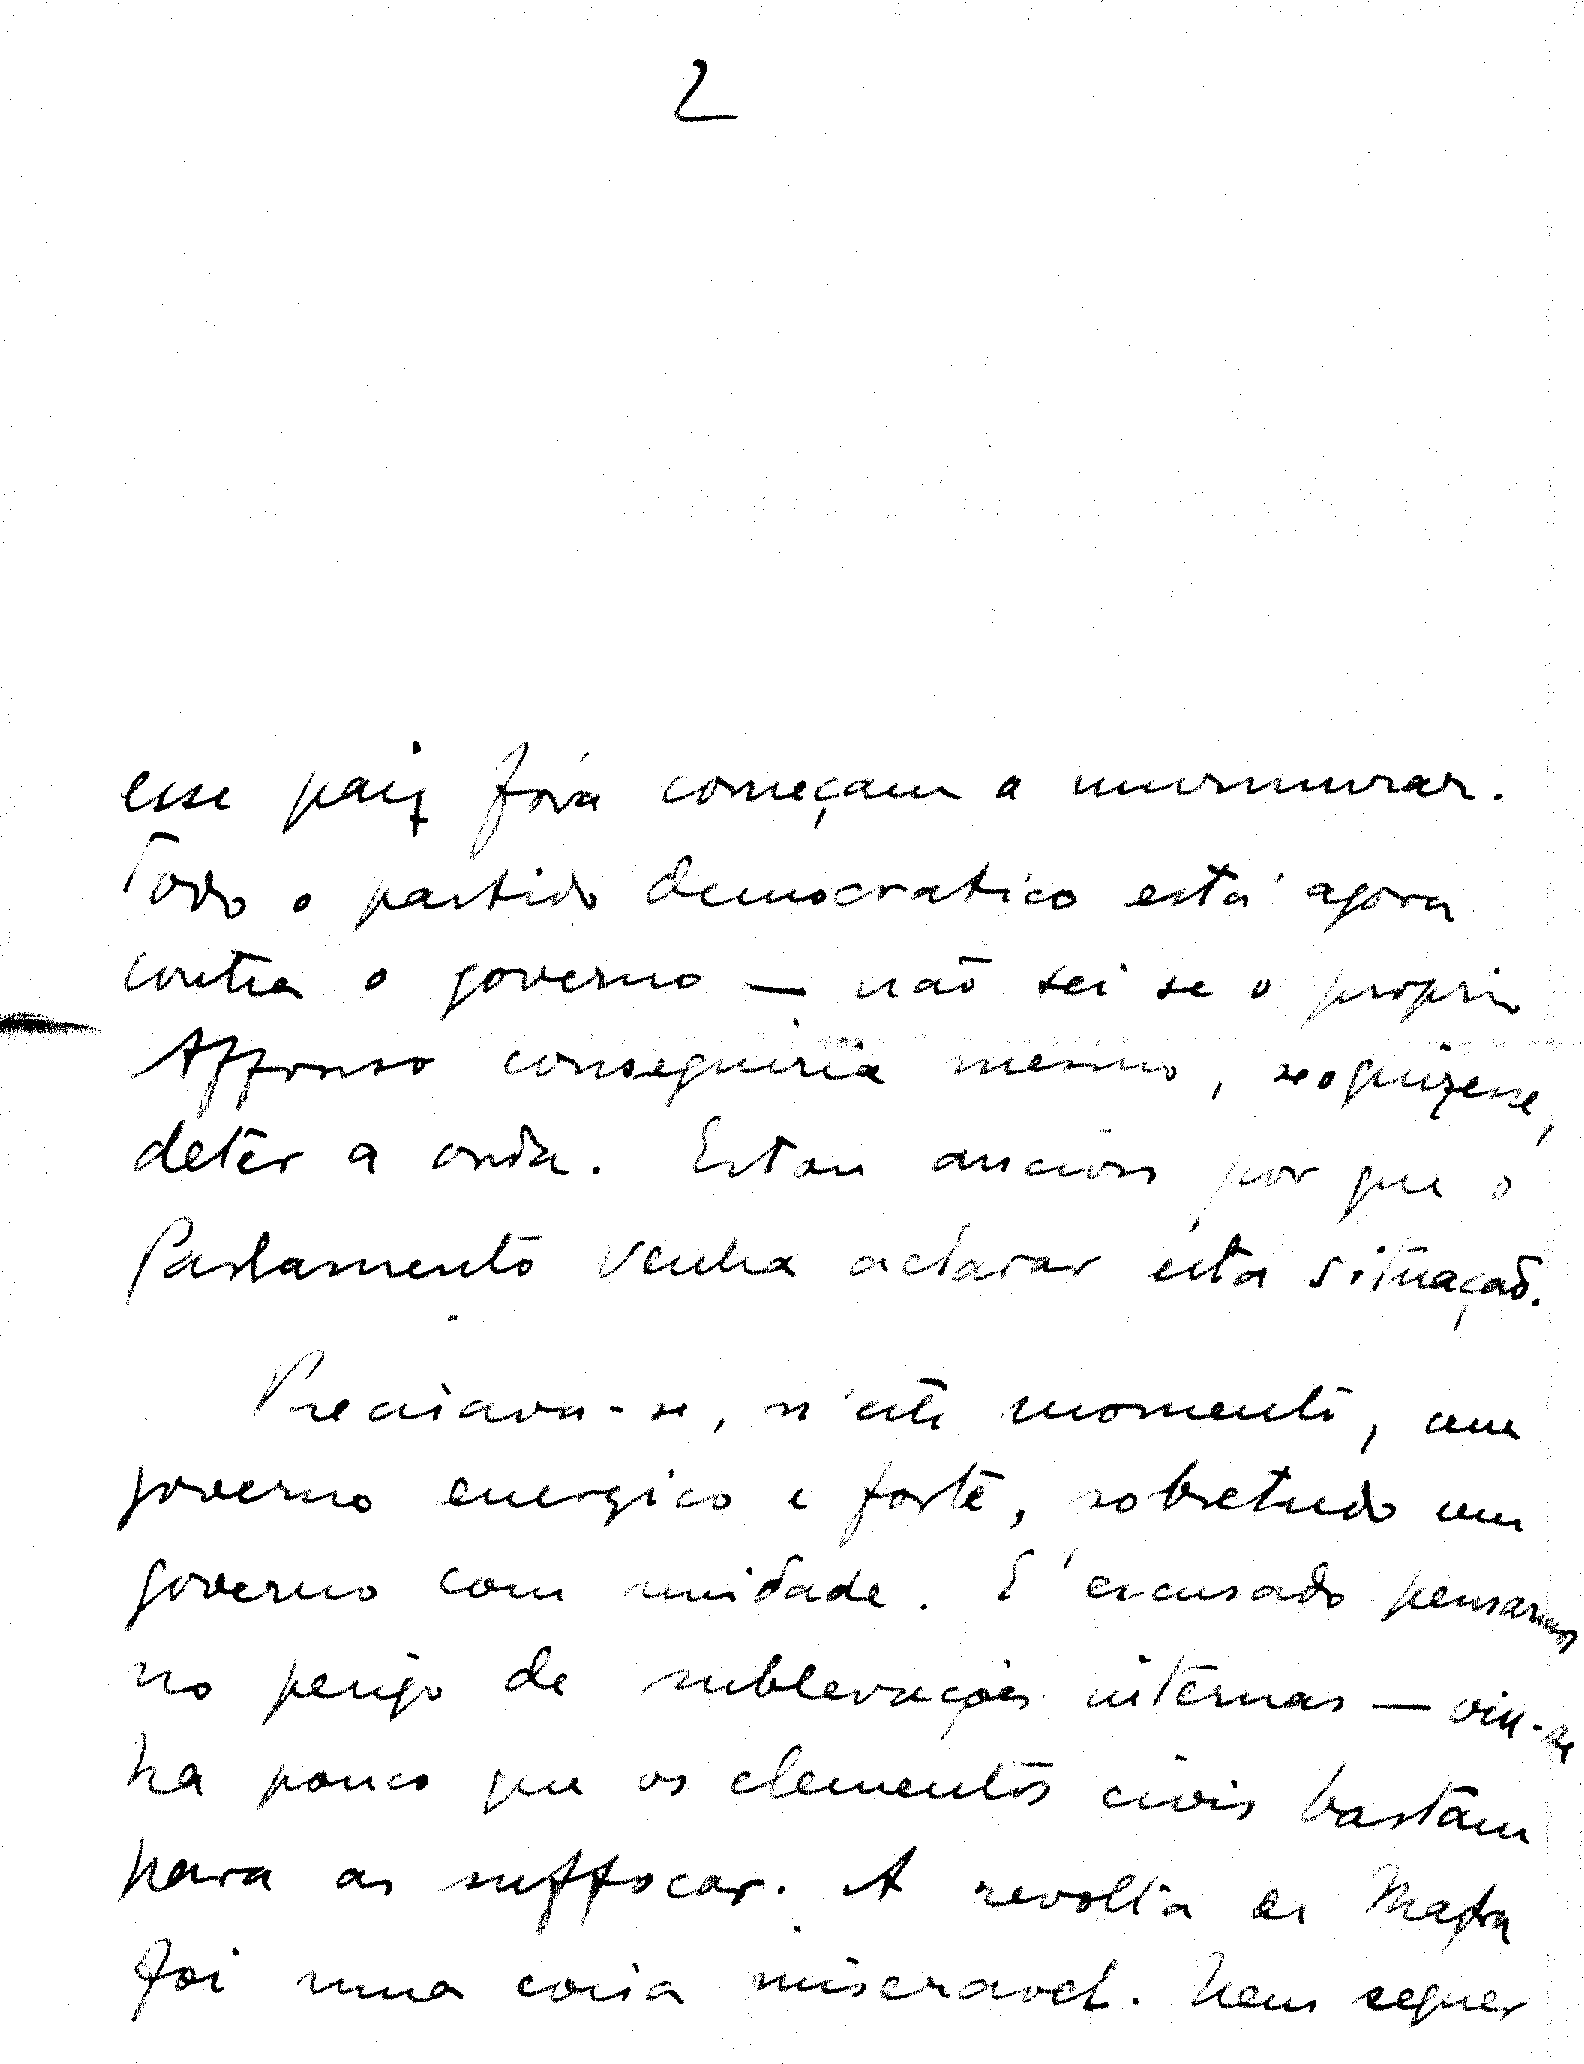 2
esse paiz fóra começam a murmurar.
Todo o partido democratico está agora
contra o governo — não sei se o proprio
Affonso conseguiria mesmo, se o quizesse,
deter a onda. Estou ancioso por que o
Parlamento venha aclarar esta situação.
Precisava-se, n'este momento, um
governo energico e forte, sobretudo um
governo com unidade. E' escusado pensarmos
no perigo de sublevações internas — viu-se
ha pouco que os elementos civis bastam
para as suffocar. A revolta de Mafra
foi uma coisa miseravel. Nem sequer